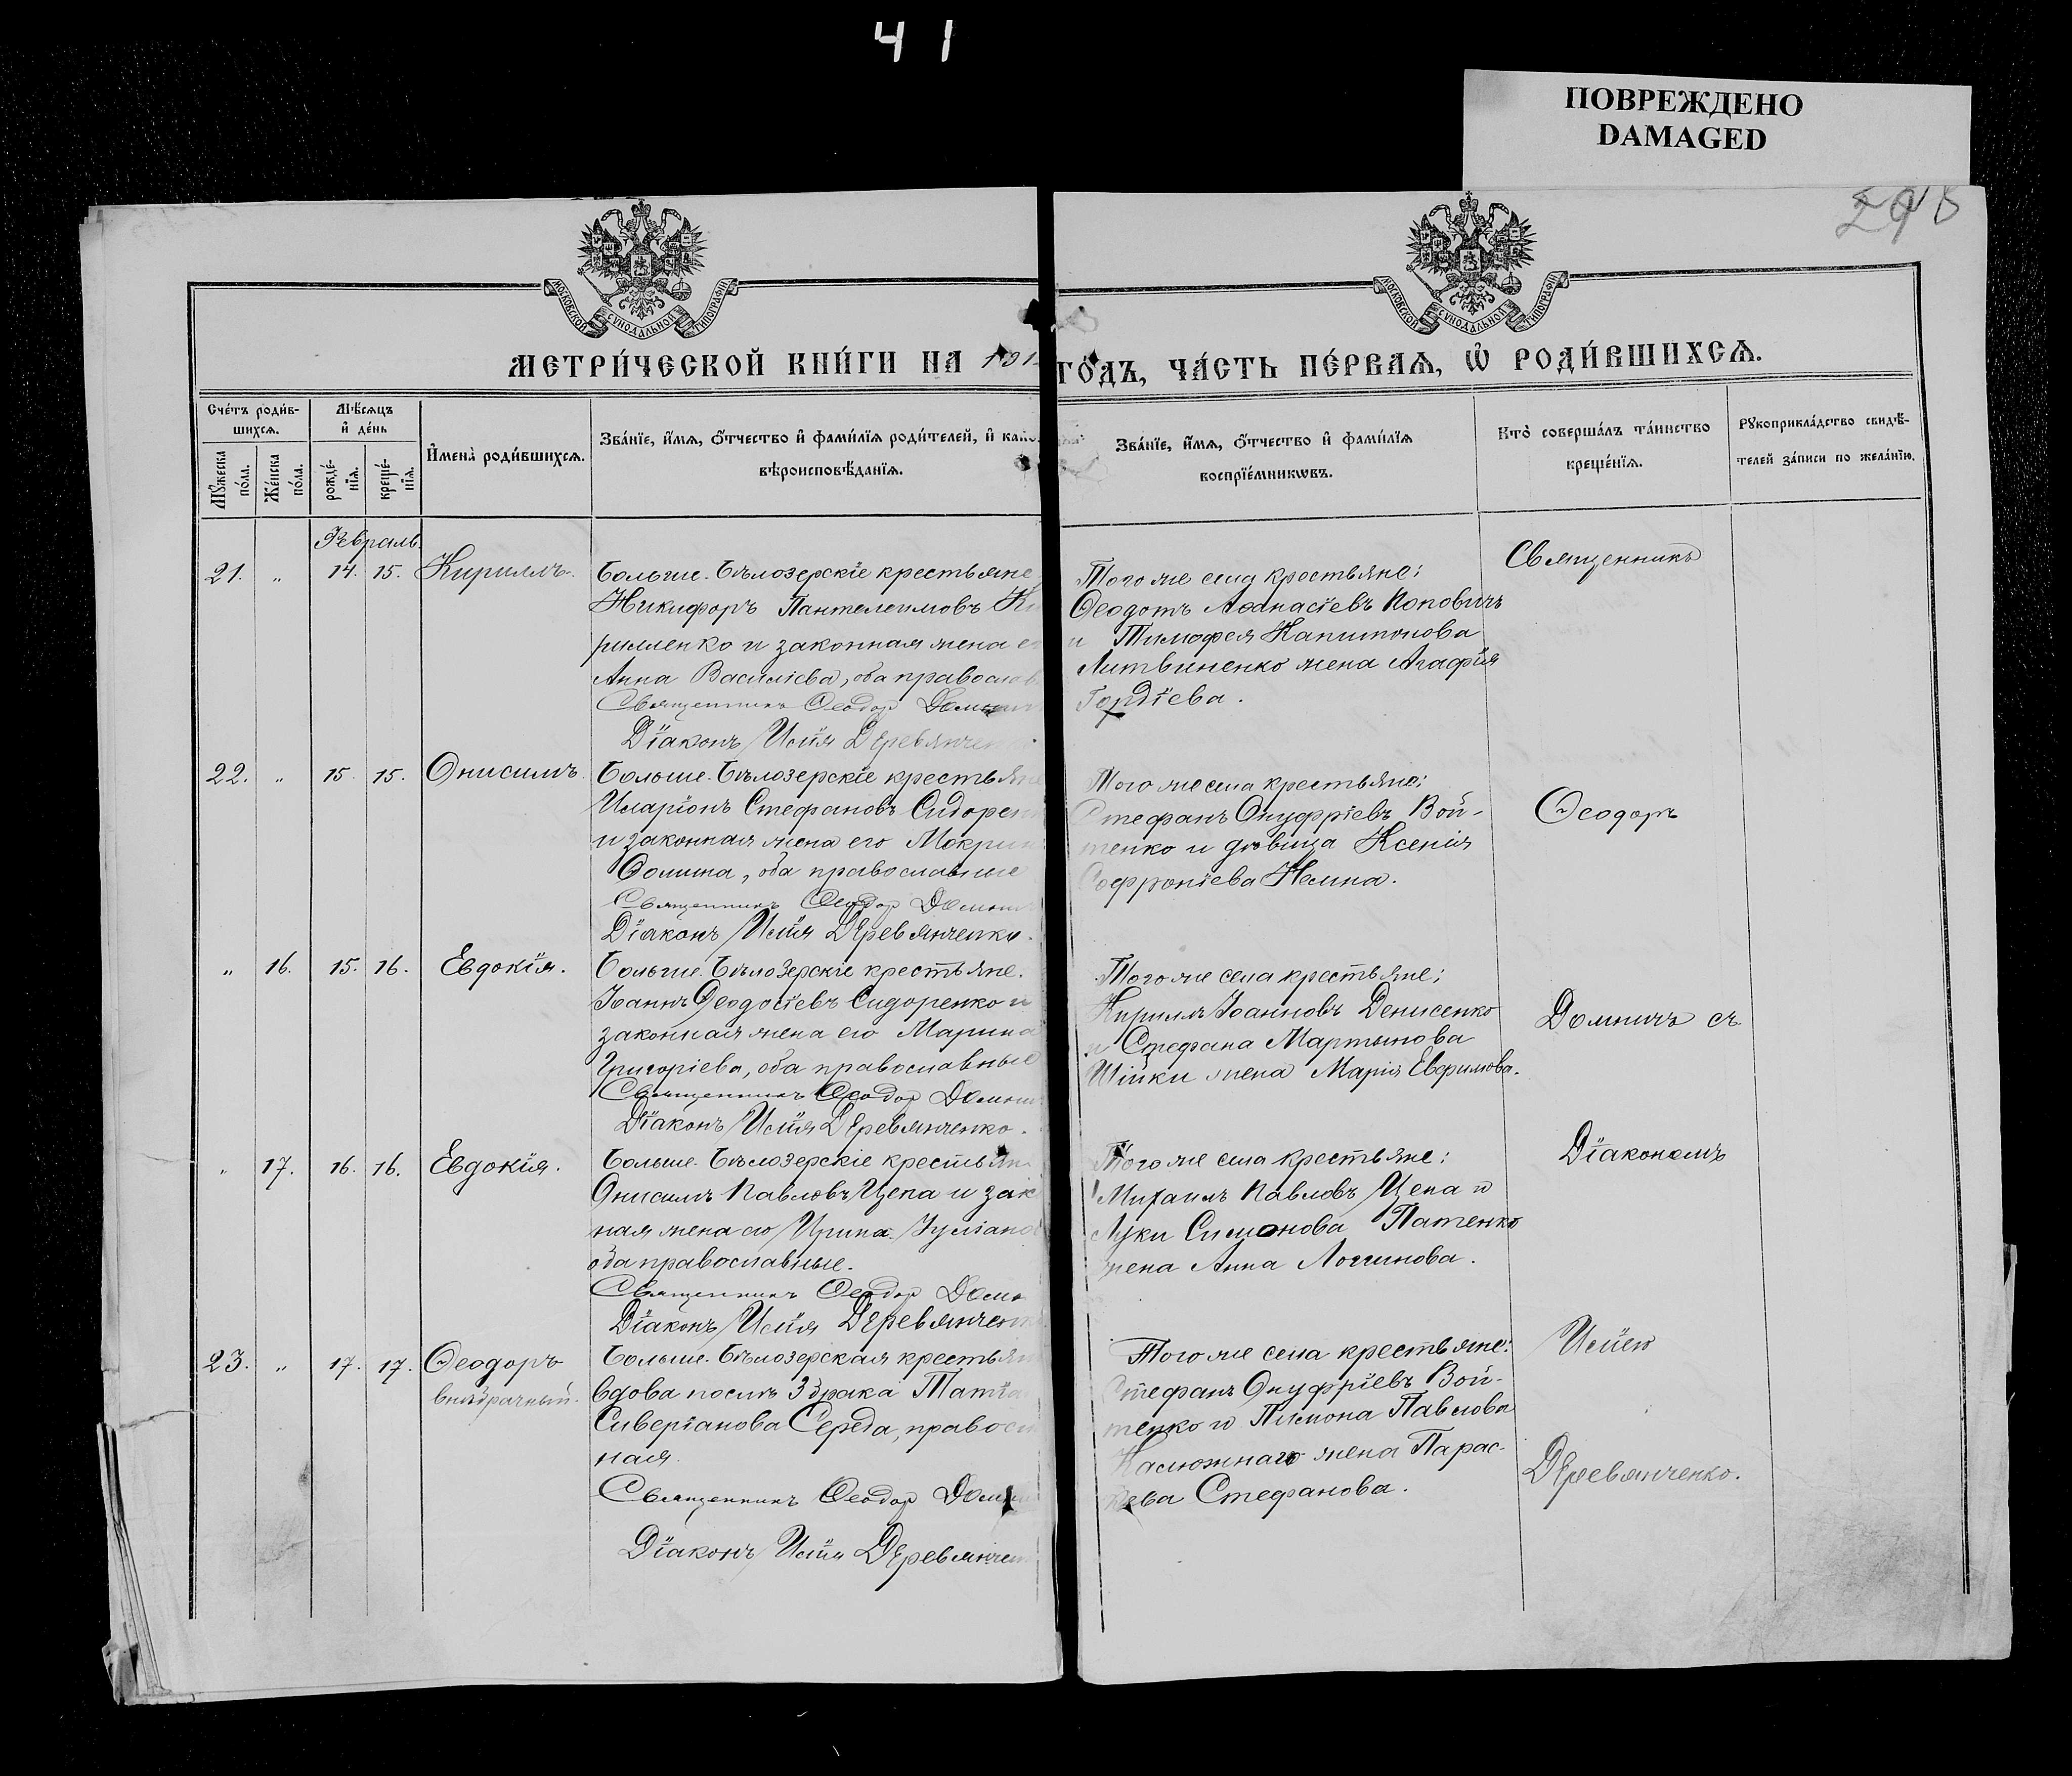 41
ПОВРЕЖДЕНО
DAMAGED
298
МОСКОВСКОЙ СУНОДАЛЬНОЙ ТИПОГРАФІИ
МОСКОВСКОЙ СУНОДАЛЬНОЙ ТИПОГРАФІИ
МЕТРИ́ЧЕСКОЙ КНИ́ГИ НА 191
ГО́ДЪ, ЧА́СТЬ ПЕ́РВАѦ, Ѡ҆ РОДИ́ВШИХСѦ.
Сче́тъ роди́в-
шихсѧ.
Мѣ́сѧцъ
и҆ де́нь
И҆мена̀ роди́вшихсѧ.
Зва́нїе, и҆́мѧ, ѻ҆́тчество и҆ фами́лїѧ роди́телей, и҆ како
вѣроисповѣ́данїѧ.
Зва́нїе, и҆́мѧ, ѻ҆́тчество и҆ фами́лїѧ
воспрїе́мникѡвъ.
Кто̀ соверша́лъ та́инство
креще́нїѧ.
Рꙋкоприкла́дство свидѣ́-
телей за́писи по жела́нїю.
Мꙋ́жеска
по́ла.
Же́нска
по́ла.
рожде́-
нїѧ.
креще́-
нїѧ.
Февраль.
21. „ 14. 15. Кириллъ.
Больше-Бѣлозерскіе крестьяне,
Никифоръ Пантелеимовъ Ки
рилленко и законная жена е
Анна Василіева, оба православ
Священникъ Ѳеодор Домнич
Діаконъ Илія Деревянчен
Того же села крестьяне:
Ѳеодотъ Аѳанасіевъ Поповичъ
и Тимофея Капитонова
Литвиненко жена Агафія
Гордіева.
22. „ 15. 15. Онисимъ.
Больше-Бѣлозерскіе крестьяне
Иларіонъ Стефановъ Сидорен
и законная жена его Мокрин
Ѳомина, оба православные
Священникъ Ѳеодор Домнич
Діаконъ Илія Деревянченко.
Того же села крестьяне:
Стефанъ Онуфріевъ Вой-
тенко и дѣвица Ксенія
Софроніева Немна.
„ 16. 15. 16. Евдокія.
Больше-Бѣлозерскіе крестьяне.
Іоаннъ Ѳеодосіевъ Сидоренко и
законная жена его Марина
Григоріева, оба православные
Священникъ Ѳеодор Домнич
Діаконъ Илія Деревянченко.
Того же села крестьяне:
Кириллъ Іоанновъ Денисенко
и Стефана Мартынова
Шійки жена Марія Евфимова.
„ 17. 16. 16. Евдокія.
Больше-Бѣлозерскіе крестьян
Онисимъ Павловъ Цепа и зак
ная жена его Ирина Іуліано
оба православные.
Священникъ Ѳеодор Домн
Діаконъ Илія Деревянченк
Того же села крестьяне:
Михаилъ Павловъ Цепа и
Луки Симонова Патенко
жена Анна Логинова.
23. „ 17. 17. Ѳеодоръ
внѣбрачный.
Больше-Бѣлозерская крестьян
вдова послѣ 3 брака Татіа
Сиверіанова Середа, правосл
ная.
Священникъ Ѳеодор Домн
Діаконъ Илія Деревянчен
Того же села крестьяне:
Стефанъ Онуфріевъ Вой-
тенко и Пимона Павлова
Калюжнаго жена Парас-
кева Стефанова.
Священникъ
Ѳеодоръ
Домничъ съ
Діакономъ
Иліею
Деревянченко.